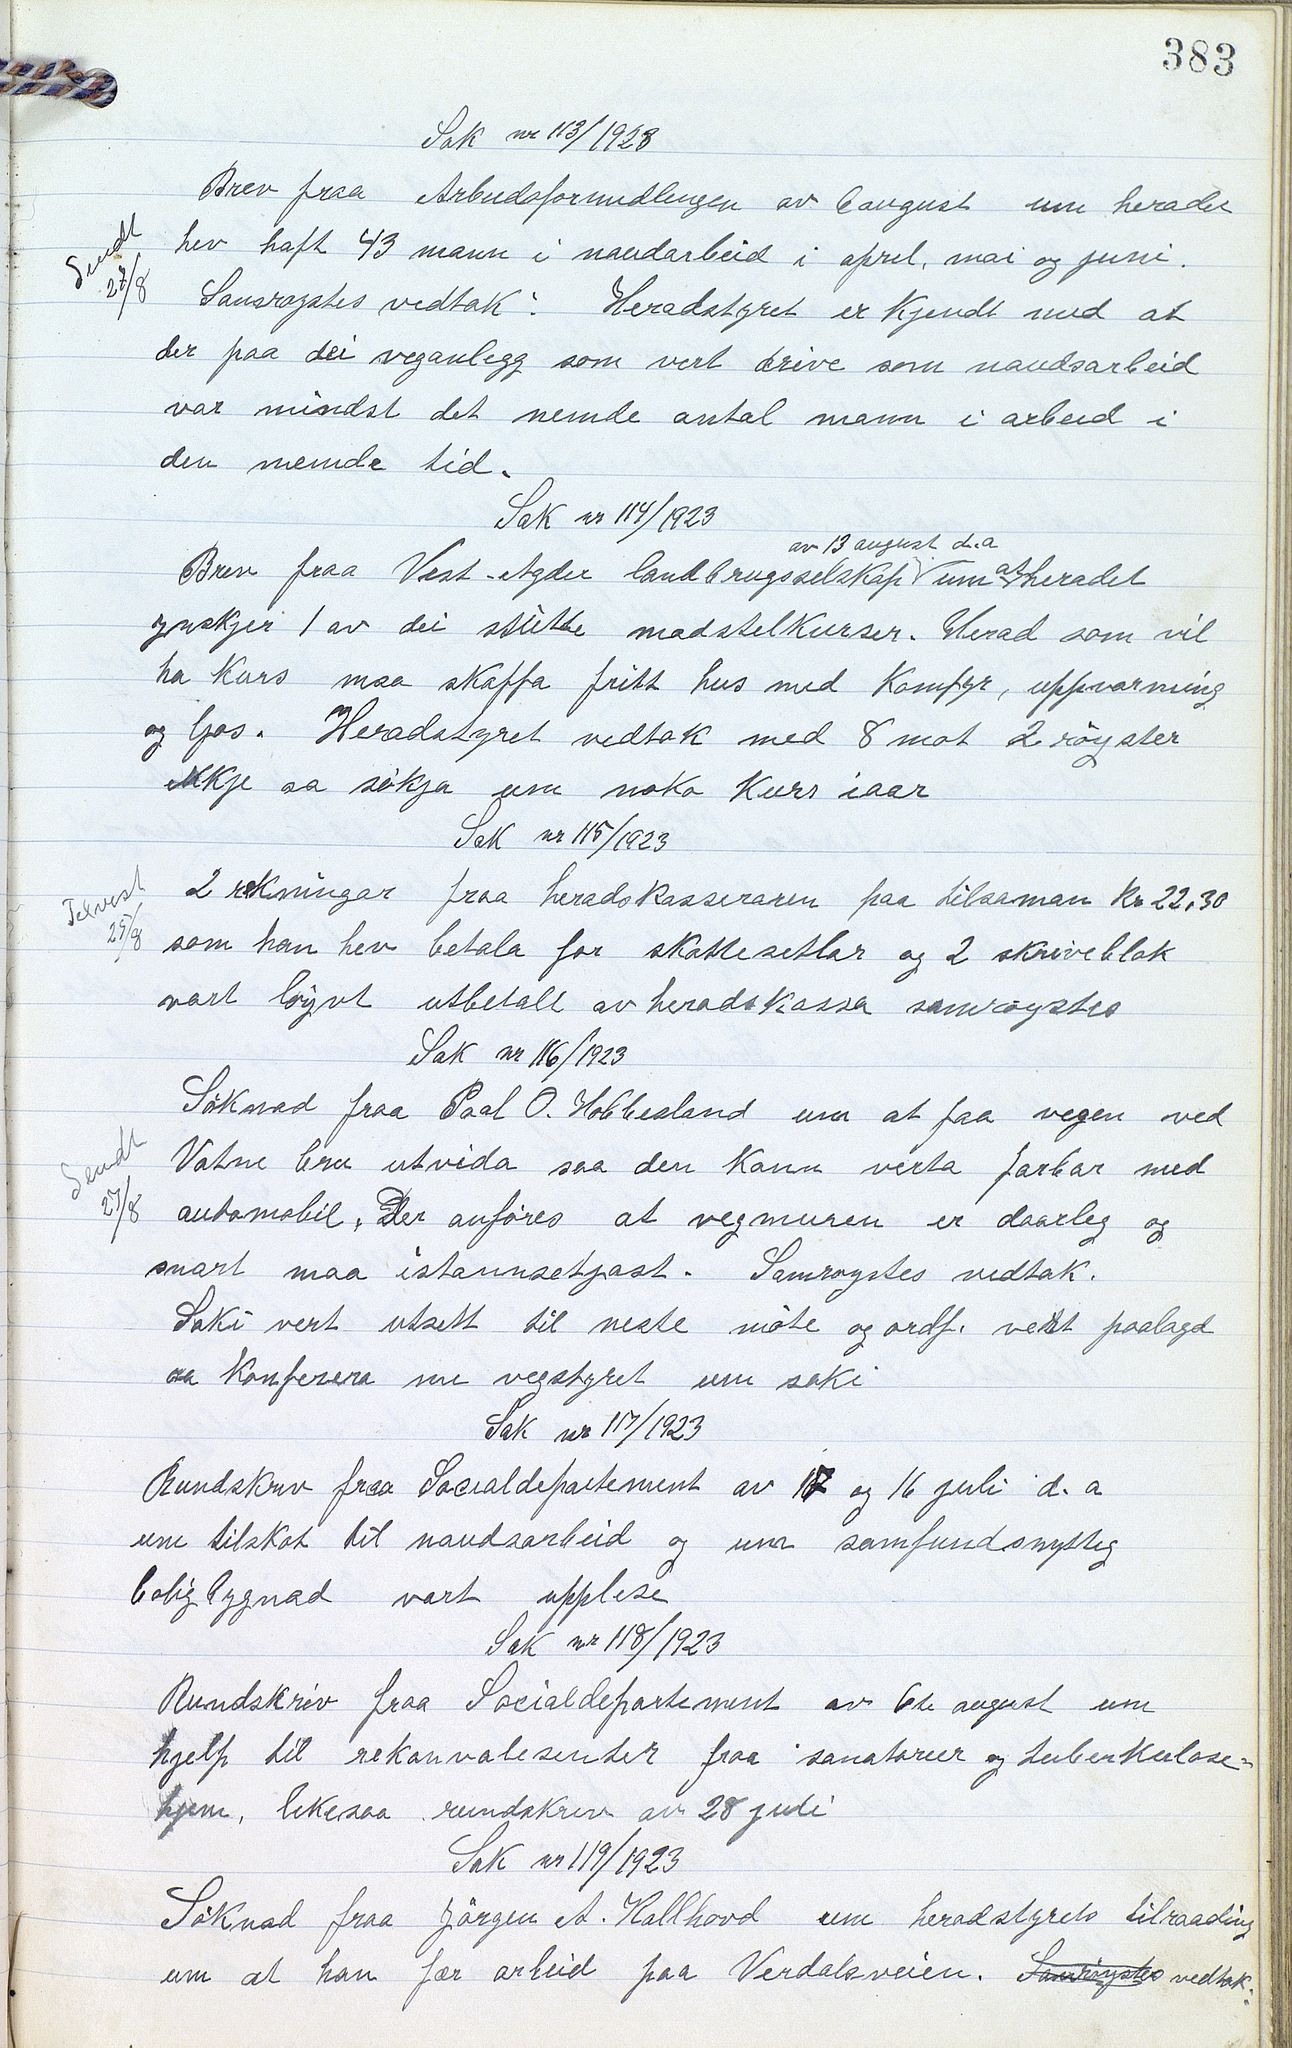 383
Sak nr 113/1923
Brev fraa Arbeidsformidlingen av 6 august um heradet
hev haft 43 mann i naudarbeid i april, mai og juni.
Sendt
27/8
Samrøystes vedtak: Heradstyret er kjendt med at
der paa dei veganlegg som vert drive som naudsarbeid
var mindst det nemde antal mann i arbeid i
den nemde tid.
Sak nr 114/1923
av 13 august d.a
Brev fraa Vest-Agder landbrugsselskap um at heradet
ynskjer 1 av dei stutte madstelkurser. Herad som vil
ha kurs maa skaffa fritt hus med komfyr, uppvarming
og ljos. Heradstyret vedtok med 8 mot 2 röyster
ikkje aa sökja um noko kurs iaar
Sak nr 115/1923
2 rekningar fraa heradskasseraren paa tilsaman kr 22.30
Tilvist
25/8
som han hev betala for skattesetlar og 2 skriveblok
vart löyvt utbetalt av heradskassa samröystes
Sak nr 116/1923
Söknad fraa Paal O. Hobbesland um at faa vegen ved
Sendt
27/8
Vatne bru utvida saa den kann verta farbar med
automobil. Der anföres at vegmuren er daarleg og
snart maa istannsetjast. Samröystes vedtak.
Saki vert utsett til neste möte og ordf. vert paalagd
aa konferera me vegstyret um saki
Sak nr 117/1923
Rundskriv fraa Socialdepartement av 17 og 16 juli d.a
um tilskot til naudsarbeid og um samfundsnyttig
boligbygnad vart upplese
Sak nr 118/1923
Rundskriv fraa Socialdepartement av 6te august um
hjelp til rekonvalesenter fraa sanatorier og tuberkulose-
hjem, likesaa rundskriv av 28 juli
Sak nr 119/1923
Söknad fraa Jörgen A. Hallhovd um heradstyrets tilraading
um at han fær arbeid paa Verdalsveien. Samröystes vedtak: